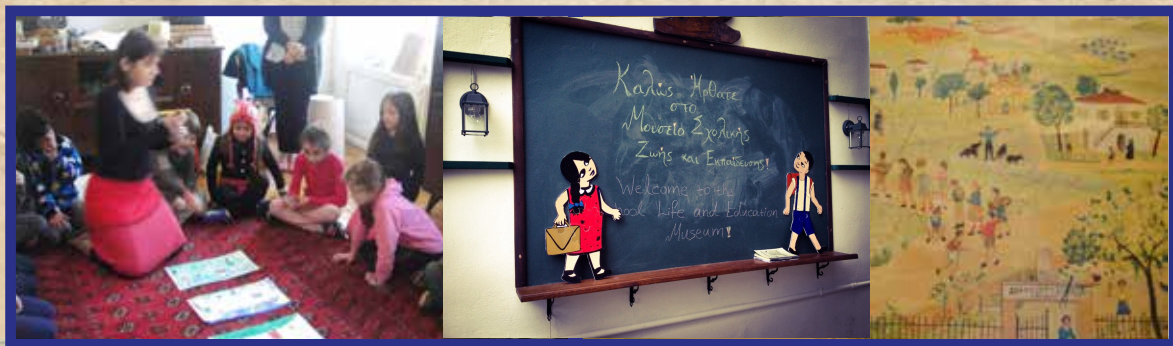 Καλώς Ήρθατε
στο
Μουσείο Σχολικής
Ζωής και Εκπαίδευσης!
Welcome to the
ool Life and Education
Museum!